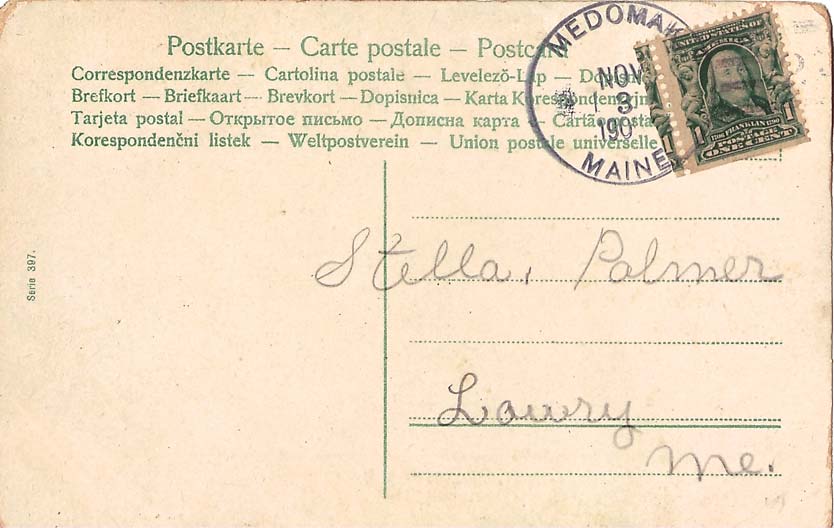 Postkarte — Carte postale — Postcard
Correspondenzkarte — Cartolina postale — Levelező-Lap — Dopisni
Brefkort — Briefkaart — Brevkort — Dopisnica — Karta Korespondencyjna
Tarjeta postal — Открытое письмо — Дописна карта — Cartão postal
Korespondenční lístek — Weltpostverein — Union postale universelle
MEDOMAK
NOV
3
190
MAINE
UNITED STATES OF AMERICA
1706 FRANKLIN 1790
POSTAGE
1 ONE CENT 1
1
Serie 397.
Stella, Palmer
Lowry
Me.